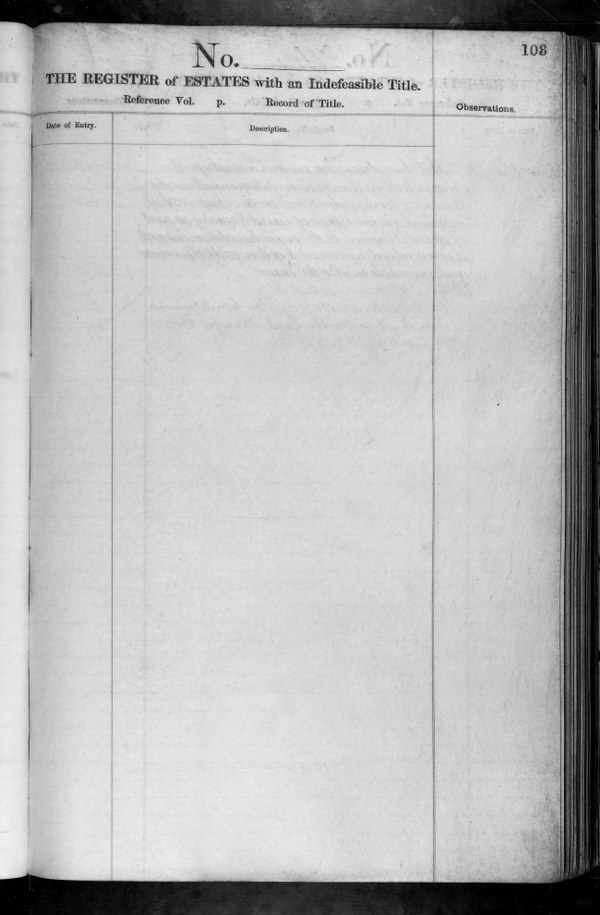 103
No.
THE REGISTER of ESTATES with an Indefeasible Title.
Reference Vol. p. Record of Title.
Observations.
Date of Entry.
Description.